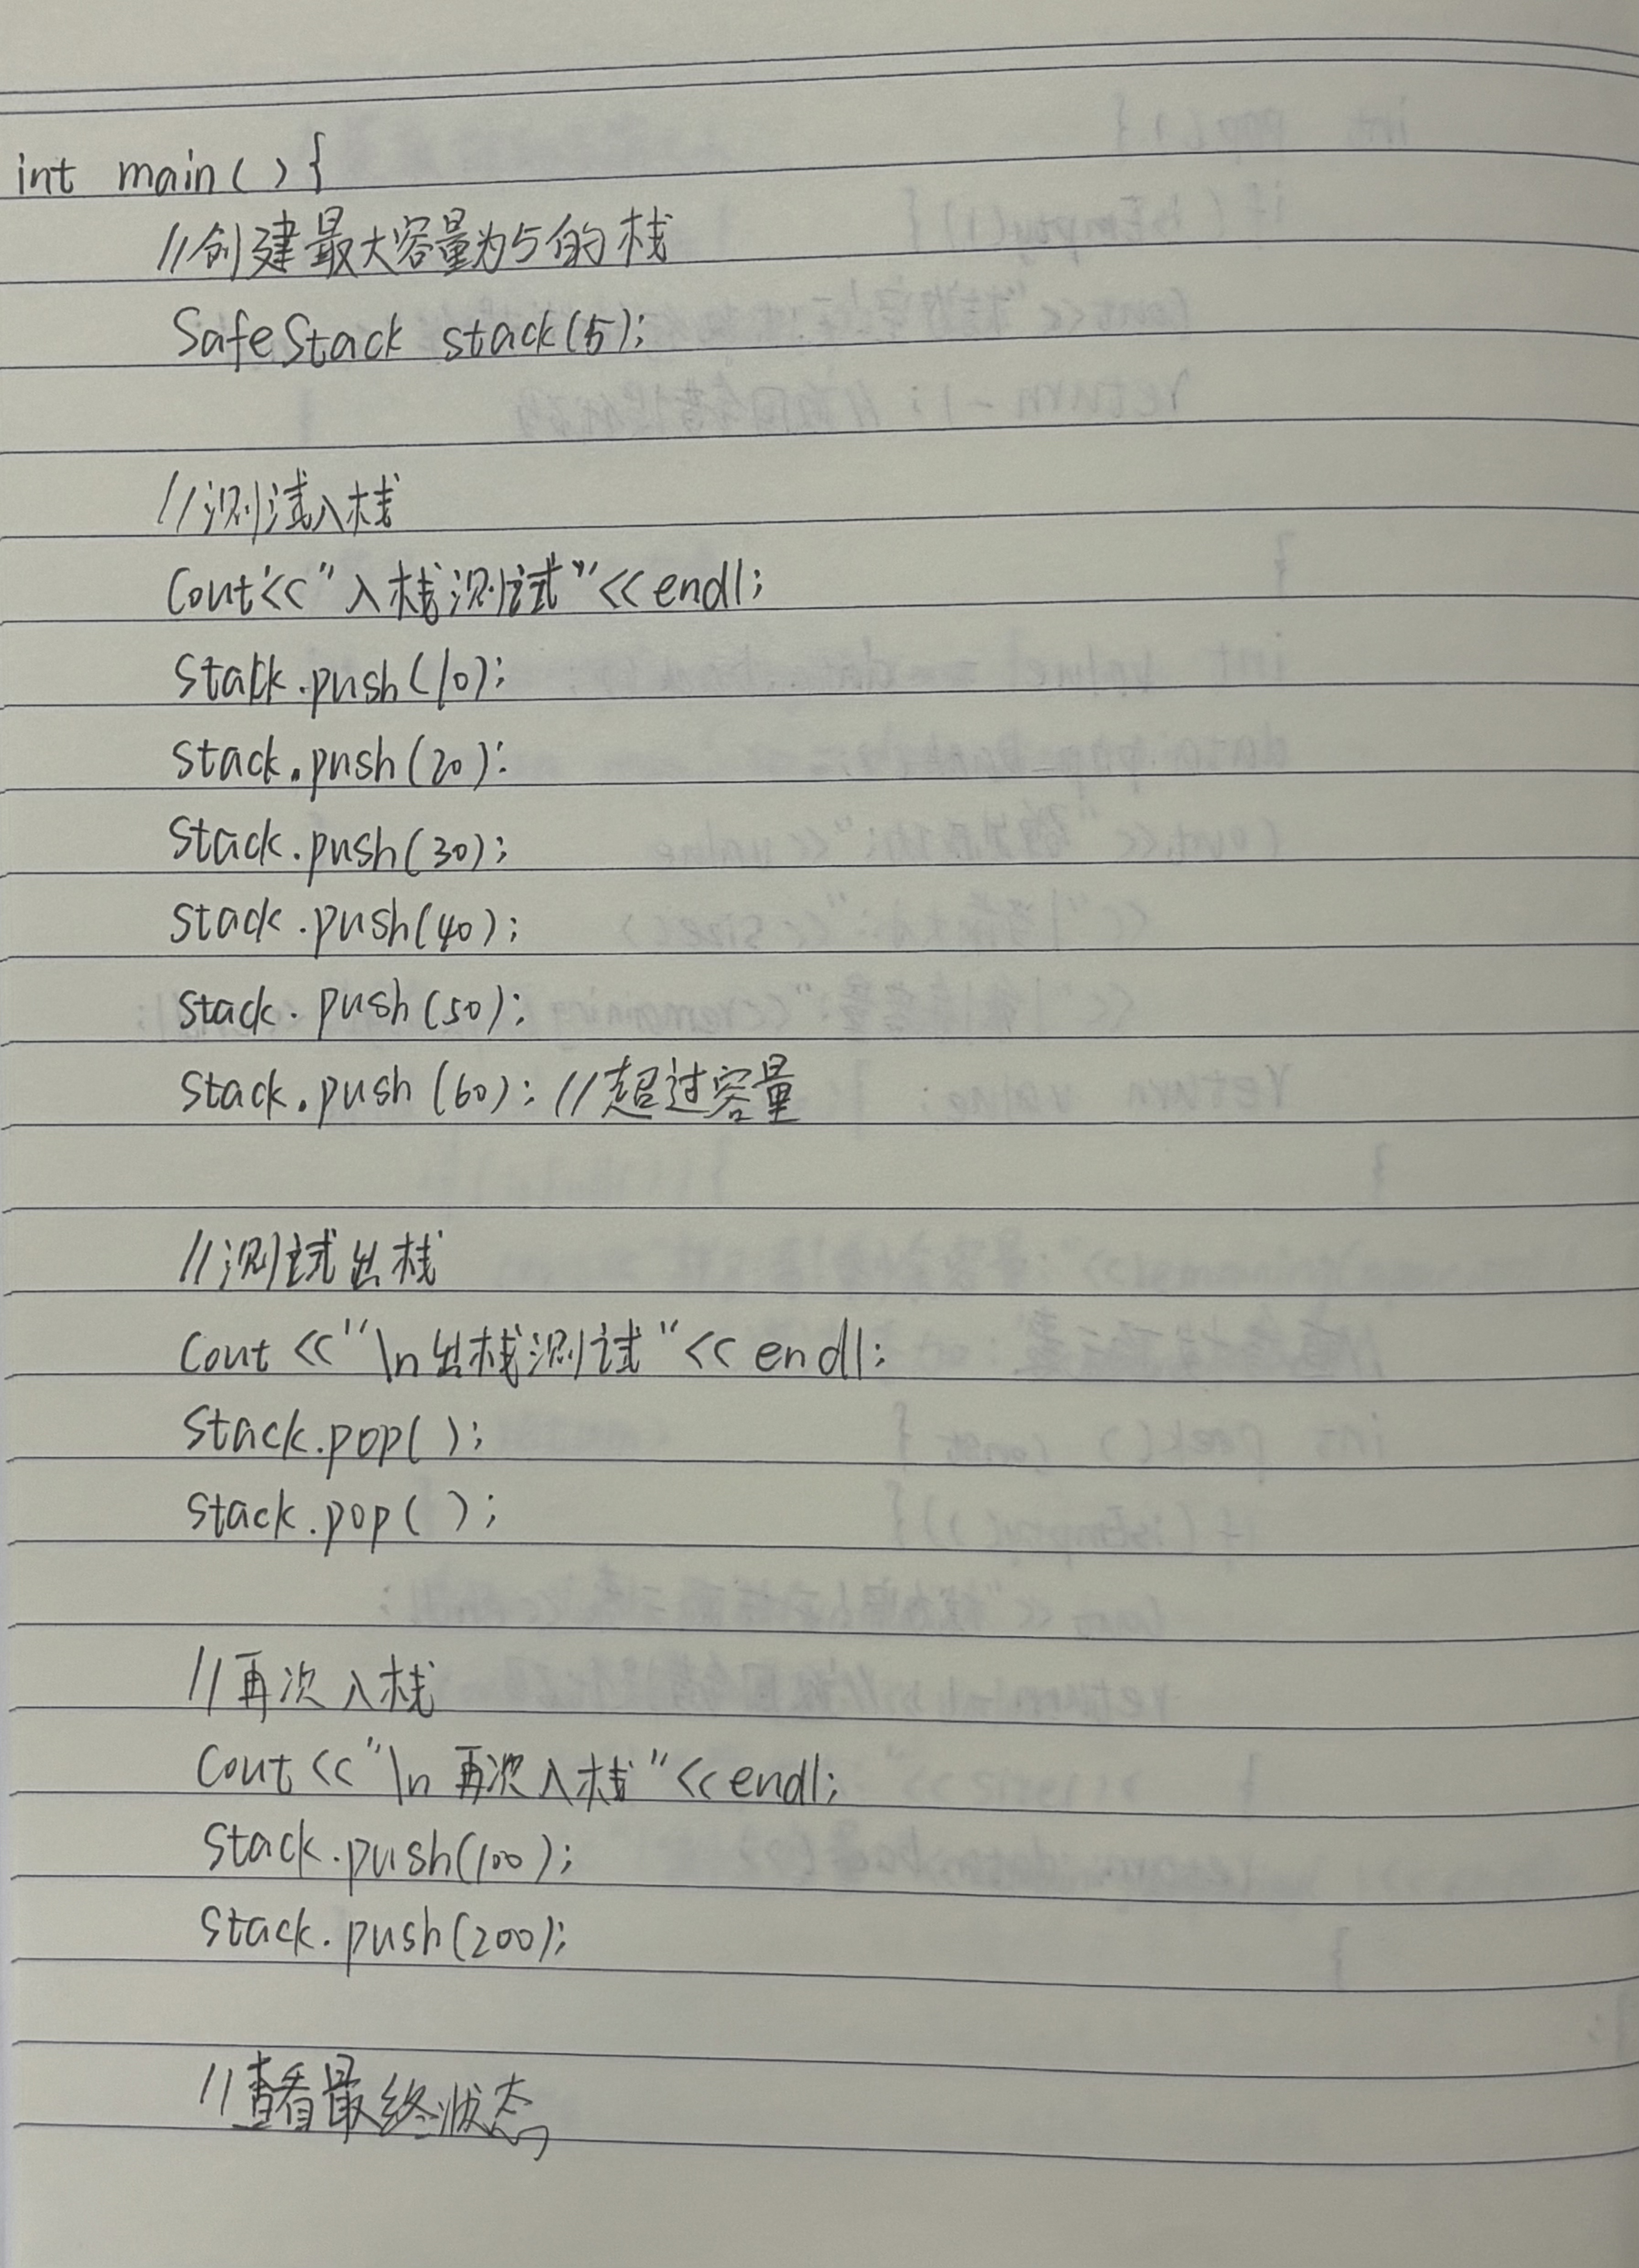 int main(){
//创建最大容量为5的栈
SafeStack stack(5);
//测试入栈
Cout<<"入栈测试"<<endl;
Stack.push(10);
Stack.push(20):
Stack.push(30);
Stack.push(40);
Stack.push(50);
Stack.push(60); //超过容量
//测试出栈
Cout <<"\n出栈测试"<< endl;
Stack.pop();
Stack.pop( );
//再次入栈
Cout <<"\n 再次入栈"<<endl;
Stack.push(100);
Stack.push(200);
//查看最终状态